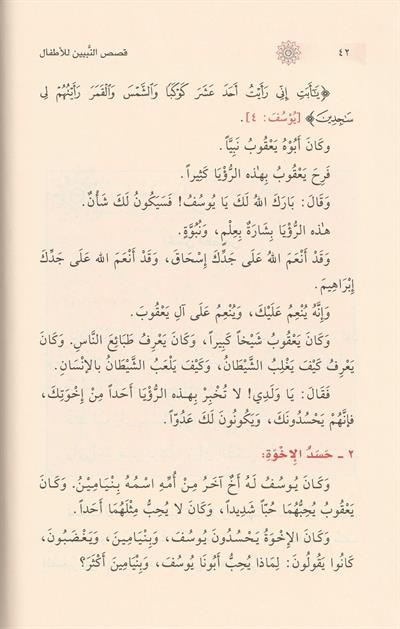 ٤٢ قصص النَّبيين للأطفال
﴿يَٰٓأَبَتِ إِنِّى رَأَيْتُ أَحَدَ عَشَرَ كَوْكَبًا وَٱلشَّمْسَ وَٱلْقَمَرَ رَأَيْتُهُمْ لِى
سَٰجِدِينَ﴾ [يُوْسُفَ: ٤].
وكَانَ أَبُوْهُ يَعْقُوبُ نَبِيَّاً.
فَرِحَ يَعْقُوبُ بِهٰذه الرُّؤْيَا كَثِيراً.
وَقَالَ: بَارَكَ اللهُ لَكَ يَا يُوسُفُ! فَسَيَكُونُ لَكَ شَأْنٌ.
هٰذه الرُّؤْيَا بِشَارَةٌ بِعِلْمٍ، وَنُبُوَّةٍ.
وَقَدْ أَنْعَمَ اللهُ عَلَى جَدِّكَ إِسْحَاقَ، وَقَدْ أَنْعَمَ اللهُ عَلَى جَدِّكَ
إِبْرَاهِيمَ.
وَإِنَّهُ يُنْعِمُ عَلَيْكَ، وَيُنْعِمُ عَلَى آلِ يَعْقُوبَ.
وَكَانَ يَعْقُوبُ شَيْخاً كَبِيراً، وَكَانَ يَعْرِفُ طَبَائِعَ النَّاسِ. وَكَانَ
يَعْرِفُ كَيْفَ يَغْلِبُ الشَّيْطَانُ، وَكَيْفَ يَلْعَبُ الشَّيْطَانُ بِالإنْسَانِ.
فَقَالَ: يَا وَلَدِي! لَا تُخْبِرْ بِهٰذه الرُّؤْيَا أَحَداً مِنْ إِخْوَتِكَ،
فَإنَّهُمْ يَحْسُدُونَكَ، وَيَكُونُونَ لَكَ عَدُوّاً.
٢ ـ حَسَدُ الإِخْوَةِ:
وَكَانَ يُوسُفُ لَهُ أَخٌ آخَرُ مِنْ أُمِّهِ اسْمُهُ بِنْيَامِيْنُ. وَكَانَ
يَعْقُوبُ يُحِبُّهُمَا حُبّاً شَدِيداً، وَكَانَ لَا يُحِبُّ مِثْلَهُمَا أَحَداً.
وَكَانَ الإِخْوَةُ يَحْسُدُونَ يُوسُفَ، وَبِنْيَامِينَ، وَيَغْضَبُونَ،
كَانُوا يَقُولُونَ: لِمَاذا يُحِبُّ أَبُونَا يُوسُفَ، وَبِنْيَامِينَ أَكْثَرَ؟